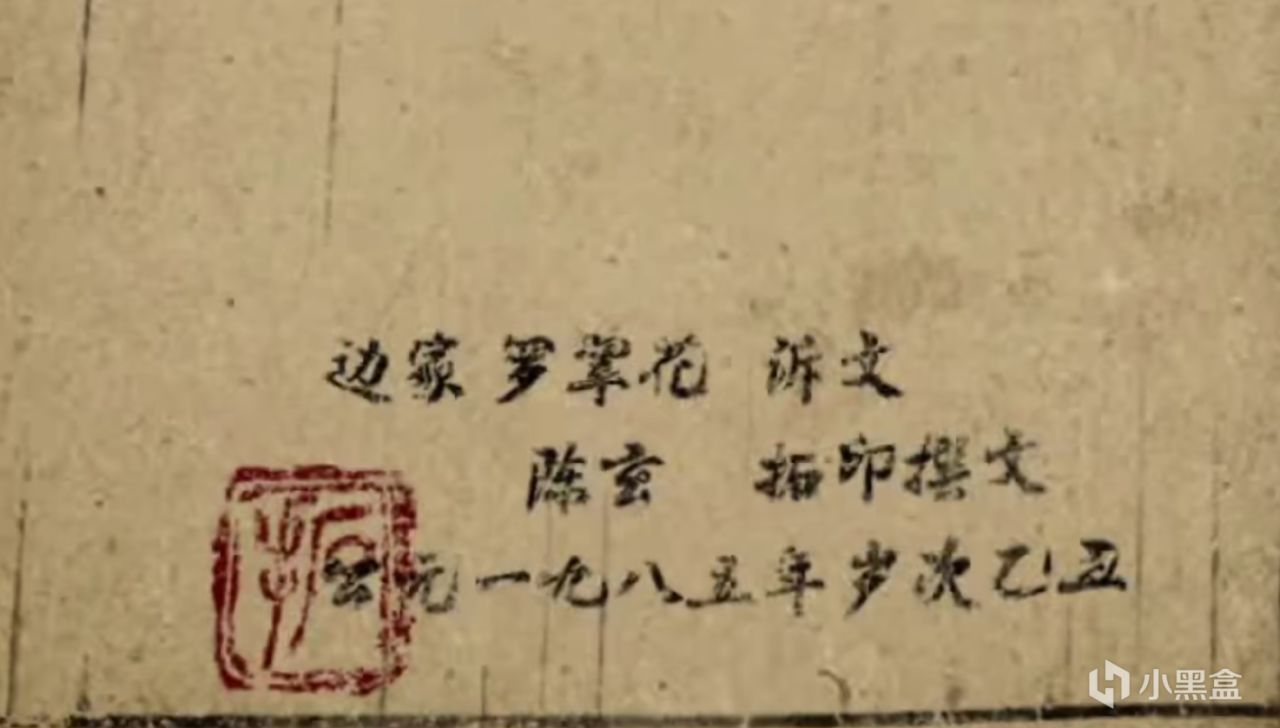 边家 罗翠花 诉文
陈玄 拓印撰文
公元一九八五年岁次乙丑
小黑盒